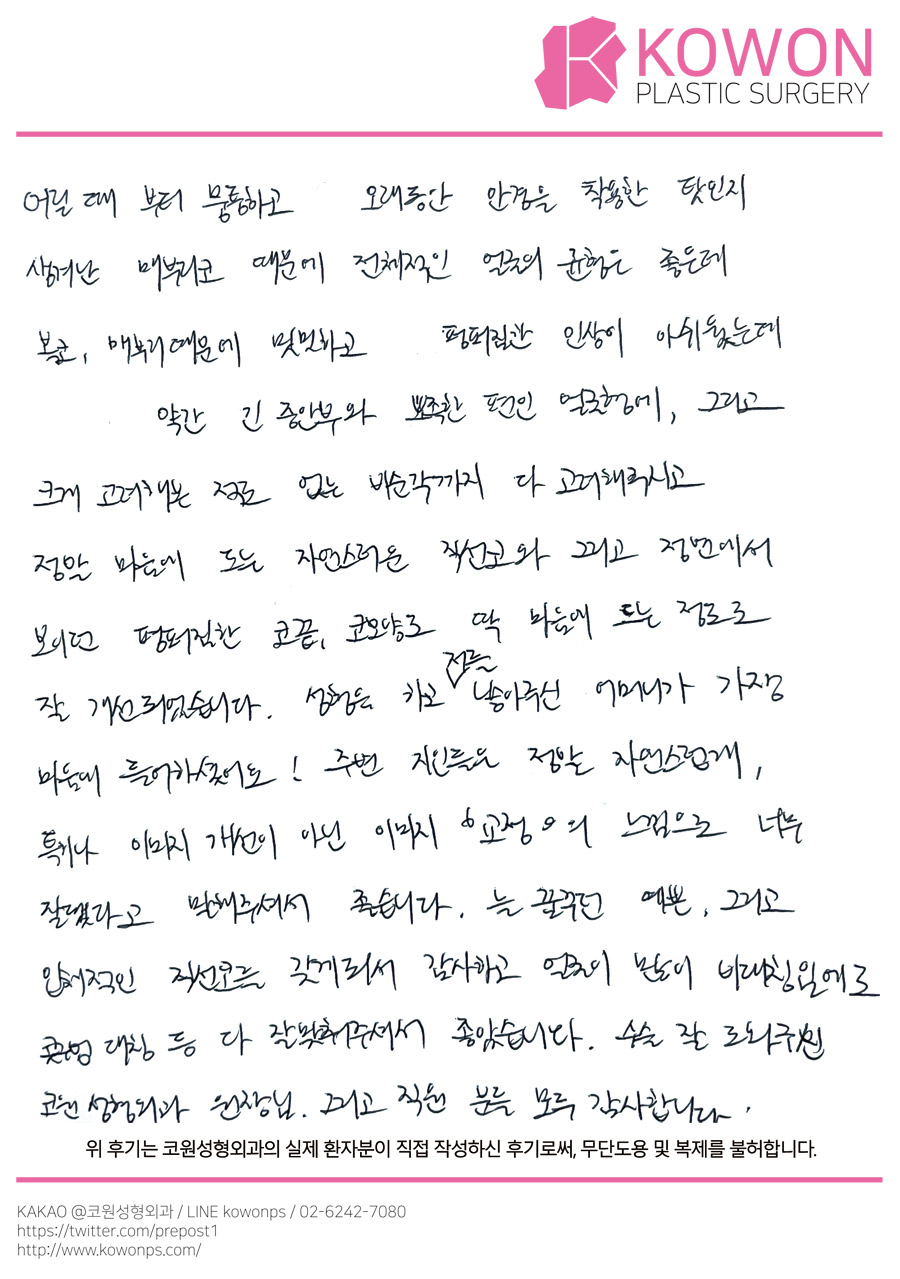 KOWON
PLASTIC SURGERY
어릴 때 부터 뭉툭하고 오래동안 안경을 착용한 탓인지
생겨난 매부리코 때문에 전체적인 얼굴의 균형은 좋은데
복코, 매부리때문에 밋밋하고 펑퍼짐한 인상이 아쉬웠는데
약간 긴 중안부와 뾰족한 편인 얼굴형에, 그리고
크게 고려해본 정도 없는 비순각까지 다 고려해주시고
정말 마음에 드는 자연스러운 직선코와 그리고 정면에서
보이던 펑퍼짐한 코끝, 코모양도 딱 마음에 드는 정도로
잘 개선되었습니다. 성형을 하고 저를 낳아주신 어머니가 가장
마음에 들어하셨어요! 주변 지인들은 정말 자연스럽게,
특히나 이미지 개선이 아닌 이미지 "교정"의 느낌으로 너무
잘됐다고 말해주셔서 좋습니다. 늘 꿈꾸던 예쁜, 그리고
입체적인 직선코를 갖게되서 감사하고 얼굴이 많이 비대칭임에도
대칭 등 다 잘맞춰주셔서 좋았습니다. 수술 잘 도와주신
코원성형외과 원장님. 그리고 직원 분들 모두 감사합니다.
위 후기는 코원성형외과의 실제 환자분이 직접 작성하신 후기로써, 무단도용 및 복제를 불허합니다.
KAKAO @코원성형외과 / LINE kowonps / 02-6242-7080
https://twitter.com/prepost1
http://www.kowonps.com/